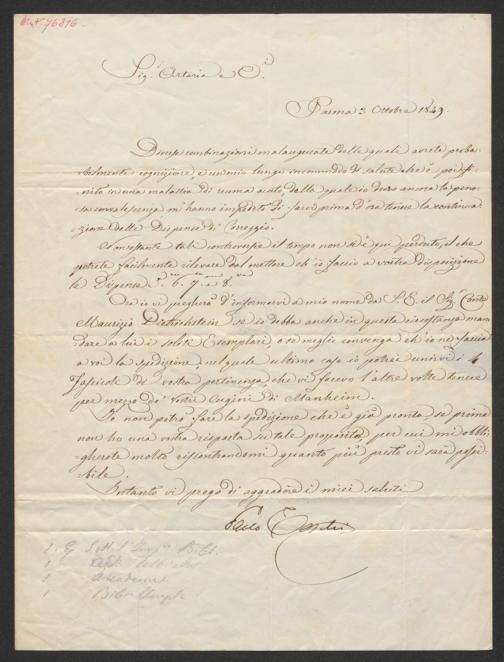 76816
Sig.ri Artaria e C.i
Parma 3 Ottobre 1849.
Diverse combinazioni malaugurate delle quali avrete proba-
bilmente cognizione, e un mio lungo incomodo di salute che è poi
in una malattia di acuto dalla quale io devo ancora la
convalescenza, m'hanno impedito di farvi prima d'ora tenere la continua-
zione delle Dispense di Correggio.
Nonostante tali controversie il tempo non si è qui perduto, il che
potrete facilmente rilevare dal mettere ch'io faccio a vostra disposizione
le Dispense 6. 7. e 8.
Ora io vi pregherò d'informarvi a mio nome da S. E. il Sig. Conte
Maurizio Dietrichstein se io debba anche in questa circostanza man-
dare a lui i soliti Esemplari, o se meglio convenga ch'io ne faccia
a voi la spedizione, nel quale ultimo caso io potrei unirvi i 4
fascicoli di vostra pertinenza, che vi facevo l'altre volte tenere
per mezzo de' vostri Cugini di Manheim.
Io non potrò fare la spedizione che è già pronta, se prima
non ho una vostra risposta su tale proposito, per cui mi obbli-
gherete molto riscontrandomi quanto più presto vi sarà possi-
bile.
Intanto vi prego di aggradire i miei saluti
Paolo
1
1
1 Accademie
1